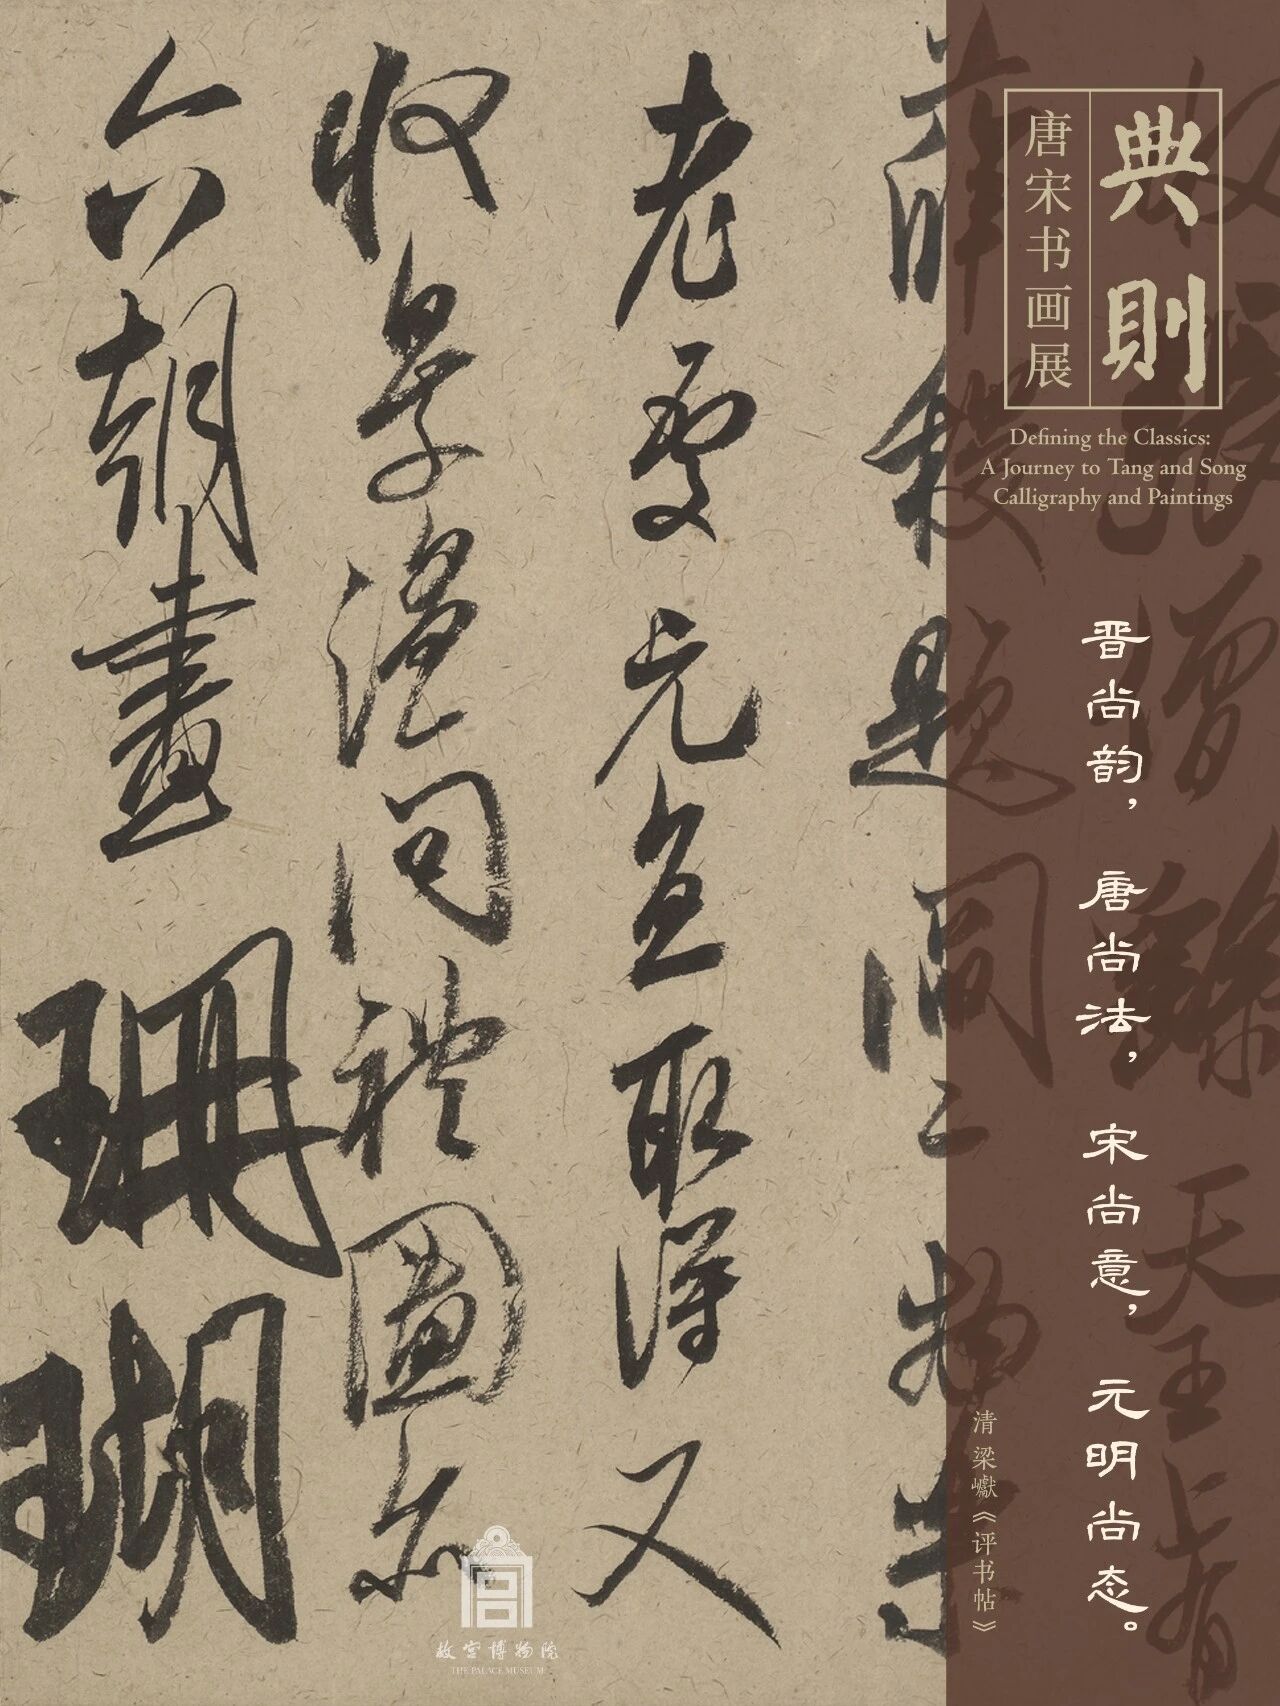 典則
唐宋书画展
Defining the Classics:
A Journey to Tang and Song
Calligraphy and Paintings
晋尚韵，唐尚法，宋尚意，元明尚态。
清 梁巘《评书帖》
收張僧繇天王上有
薛稷題閻二物樂
老處元直取得又
收景温問禮圖亦
六朝畫珊瑚
故宫博物院
THE PALACE MUSEUM